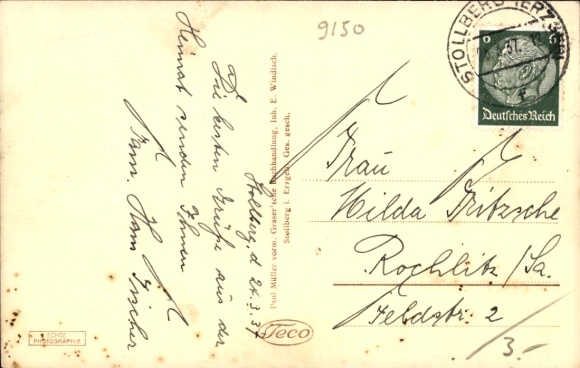 9150
STOLLBERG (ERZGEB)
37
6
6
Deutsches Reich
Stollberg, d. 24.3.37
Die besten Grüße aus der
Heimat senden Ihnen
Fam. Hans Fischer
Paul Müller vorm. Graser'sche Buchhandlung, Inh. E. Windisch,
Stollberg i. Erzgeb. Ges. gesch.
Frau
Hilda Fritzsche
Rochlitz /Sa.
Feldstr. 2
3.-
Teco
ECHTE
PHOTOGRAPHIE